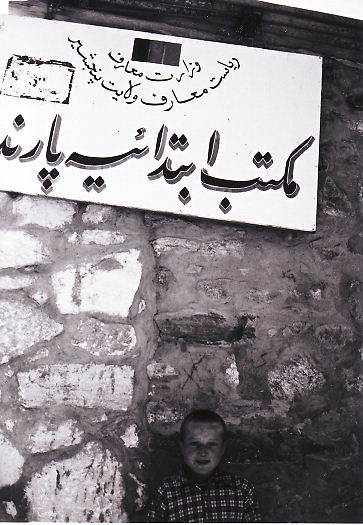 وزارت معارف
ریاست معارف ولایت پنجشیر
مکتب ابتدائیه پارند